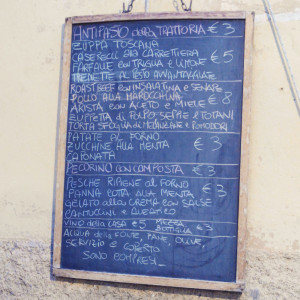 ANTIPASTO della TRATTORIA € 3
ZUPPA TOSCANA
CASERECCE alla CARRETTIERA
FARFALLE con TRIGLIA E € 5
AL PESTO
ROAST BEEF con INSALATINA e SENAPE
POLLO ALLA MAROCCHINA € 8
ARISTA con ACETO e MIELE
ZUPPETTA DI POLPO SEPPIE e TOTANI
TORTA SFOGLIA di MELANZANE e POMODORI
PATATE AL FORNO
ZUCCHINE alla MENTA € 3
CAPONATA
PECORINO con COMPOSTA € 3
PESCHE RIPIENE al FORNO
PANNA COTTA ALLA MENTA € 3
GELATO alla CREMA con SALSE
CANTUCCINI e ALEATICO
VINO della CASA € 5 MEZZA BOTTIGLIA € 3
ACQUA della FONTE, PANE, OLIVE,
SERVIZIO e COPERTO
SONO COMPRESI